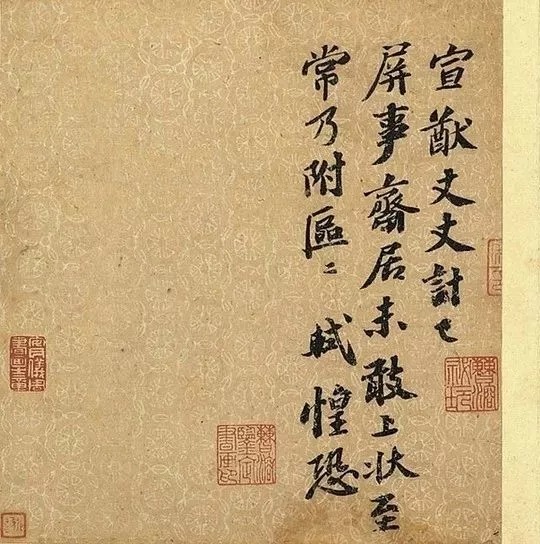 宣猷丈丈計已
屏事齋居未敢上狀至
常乃附區〻軾惶恐